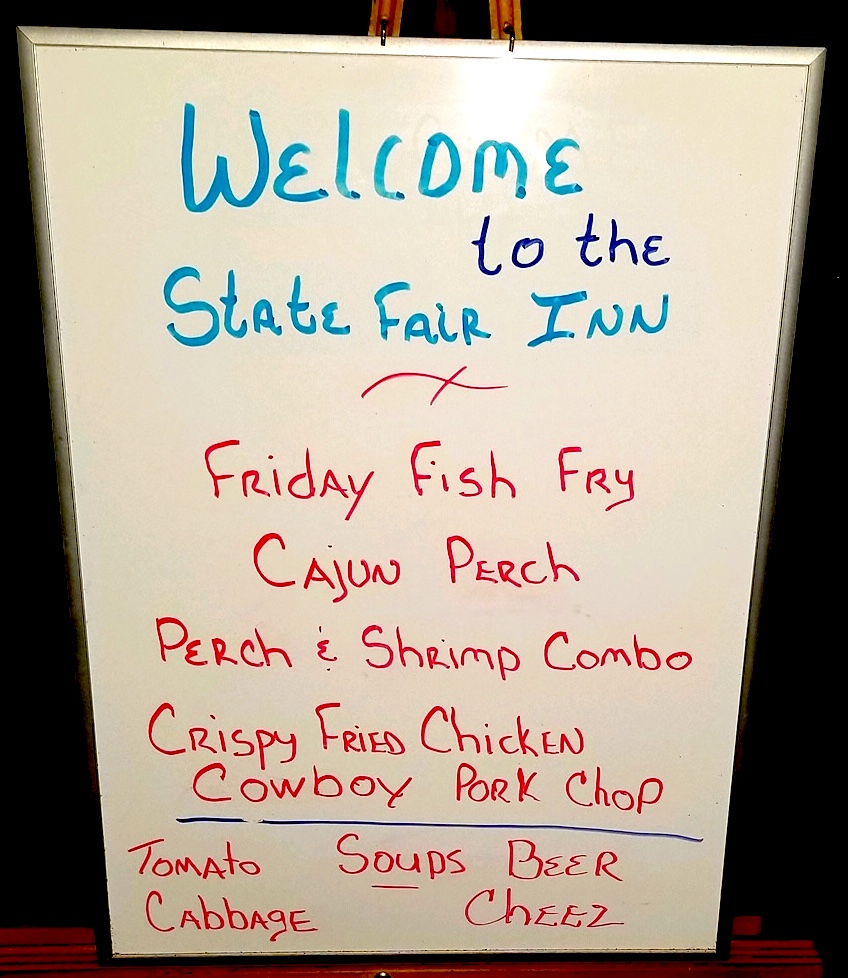 Welcome
to the
State Fair Inn
Friday Fish Fry
Cajun Perch
Perch & Shrimp Combo
Crispy Fried Chicken
Cowboy Pork Chop
Tomato Soups Beer
Cabbage Cheez